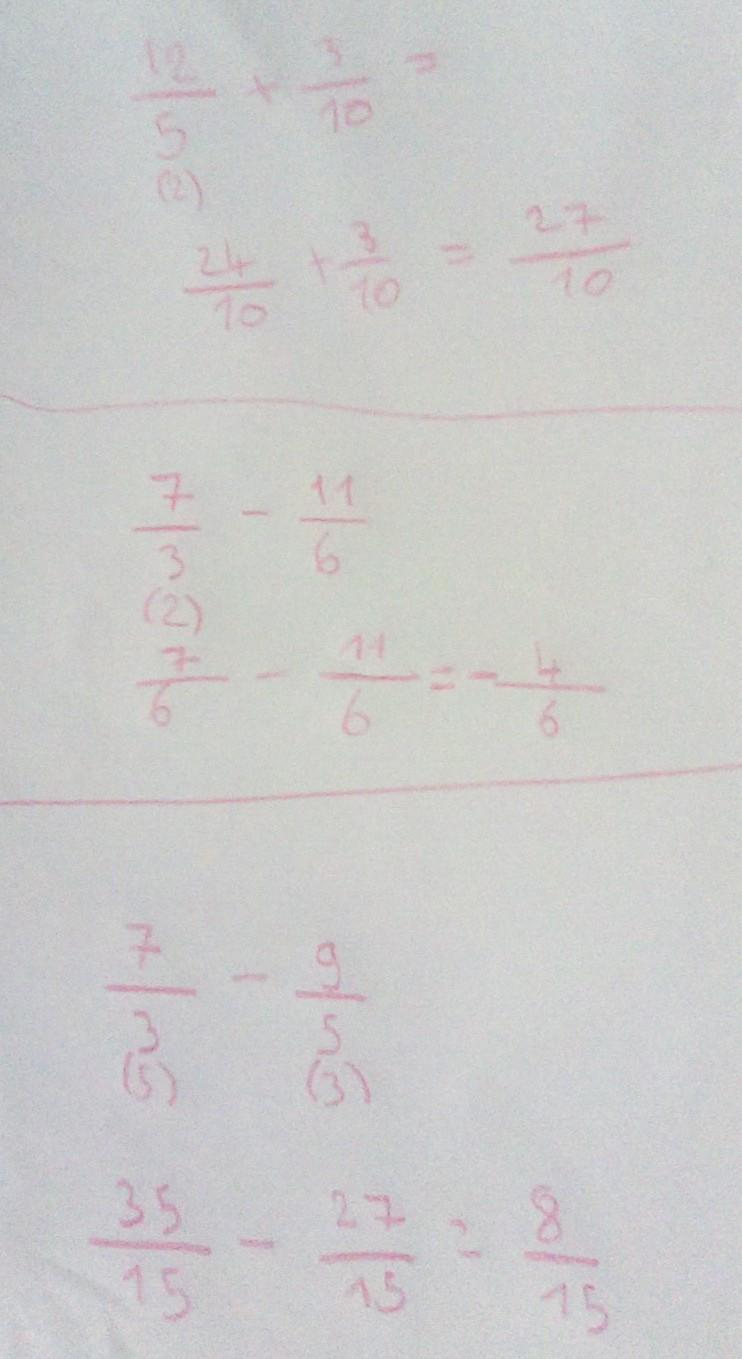 12/5 + 3/10 =
(2)
24/10 + 3/10 = 27/10
7/3 - 11/6
(2)
7/6 - 11/6 = - 4/6
7/3 - 9/5
(5) (3)
35/15 - 27/15 = 8/15